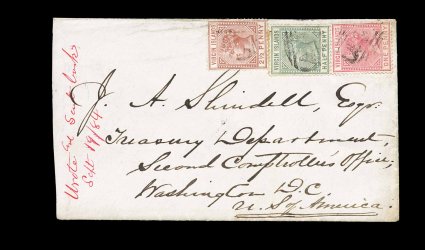 VIRGIN ISLANDS
2½ PENNY
VIRGIN ISLANDS
HALF PENNY
VIRGIN ISLANDS
ONE PENNY
J. A. Shindell, Esqr.
Treasury Department,
Second Comptroller's Office,
Washington D.C.
U. S. of America.
Wrote
Sept 19/84